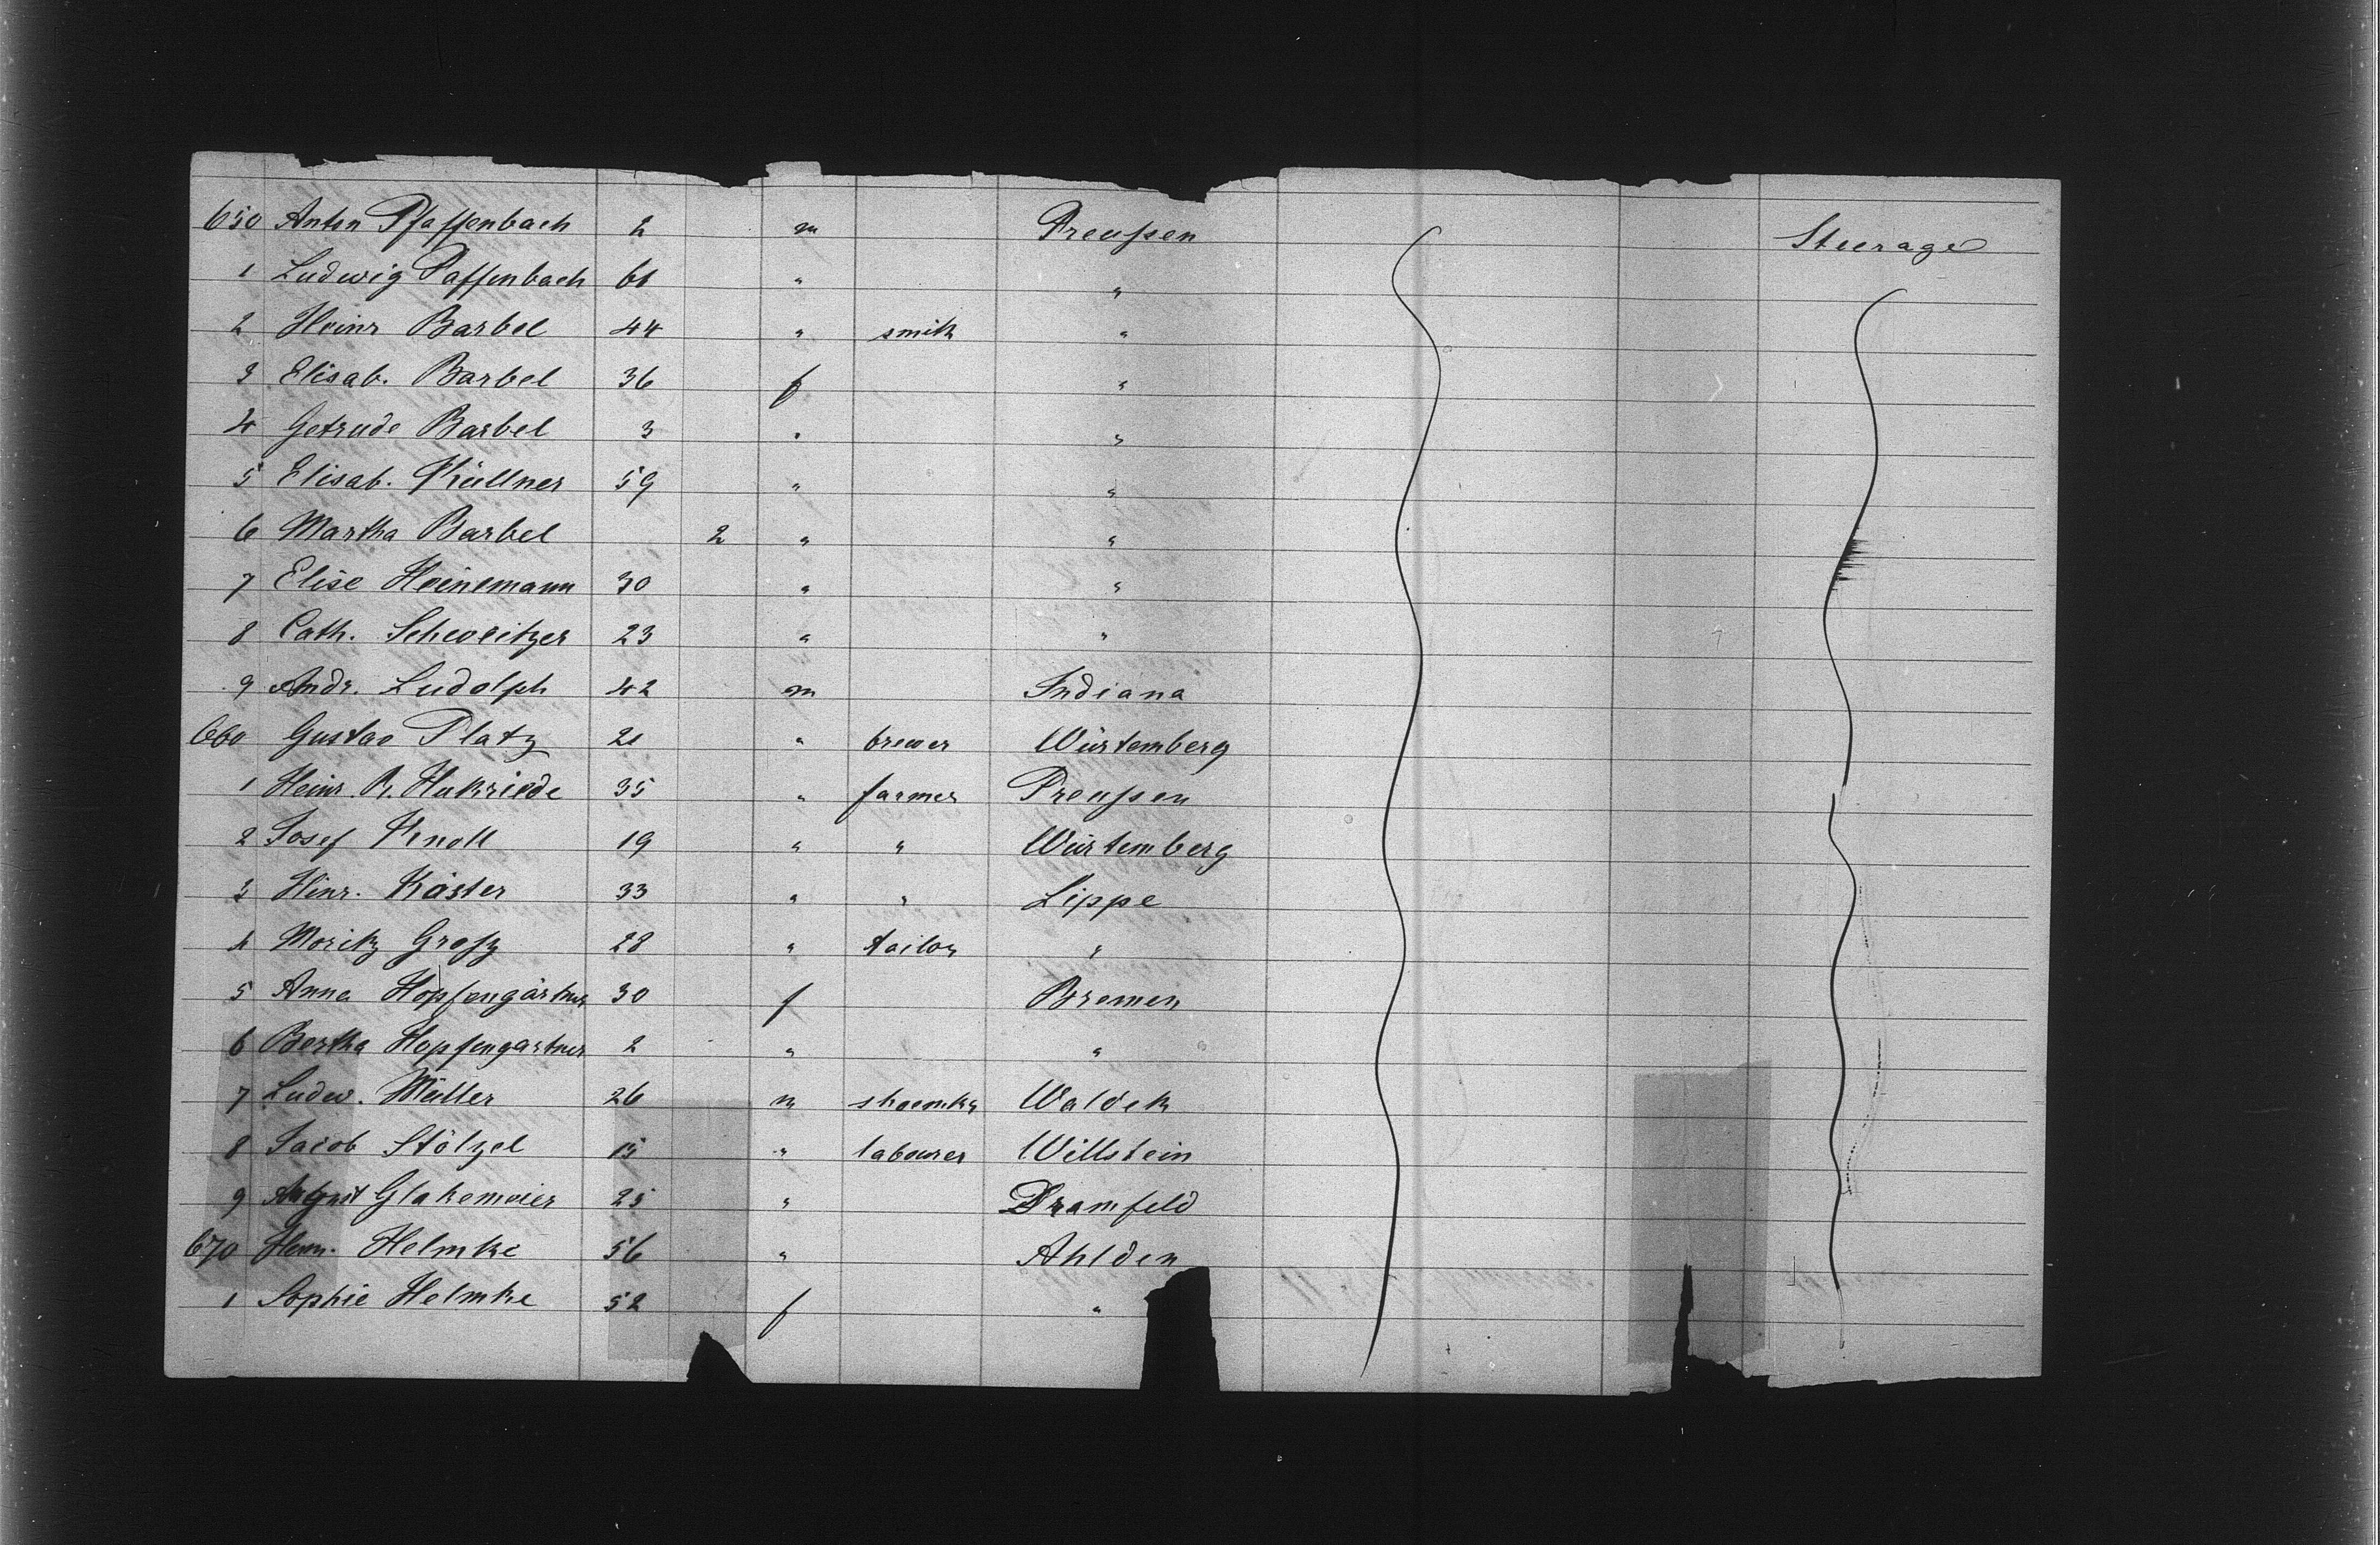 650 Anton Pfaffenbach 2 m Preußen Steerage
1 Ludwig Paffenbach 61 " "
2 Heinr Barbel 44 " smith "
3 Elisab. Barbel 36 f "
4 Getrude Barbel 3 " "
5 Elisab. Küllner 59 " "
6 Martha Barbel 2 " "
7 Elise Heinemann 30 " "
8 Cath. Schweitzer 23 " "
9 Andr. Ludolph 42 m Indiana
660 Gustav Platz 21 " brewer Würtemberg
1 Heinr. R. Hukriede 35 " farmer Preußen
2 Josef Knoll 19 " " Würtemberg
3 Hinr. Köster 33 " " Lippe
4 Moritz Groß 28 " tailor "
5 Anna Hopfengärtner 30 f Bremen
6 Bertha Hopfengartner 2 " "
7 Ludw. Müller 26 m shoemkr Waldek
8 Jacob Stölzel 15 " labourer Willstein
9 August Glakemeier 25 " Dramfeld
670 Herm. Helmke 56 " Ahlden
1 Sophie Helmke 52 f "